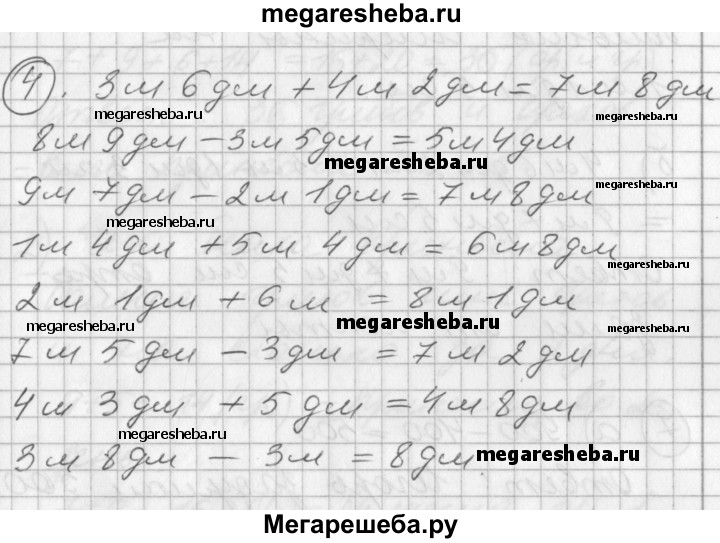 megaresheba.ru
4. 3м 6дм + 4м 2дм = 7м 8дм
megaresheba.ru megaresheba.ru
8м 9дм – 3м 5дм = 5м 4дм
megaresheba.ru
9м 7дм – 2м 1дм = 7м 8дм
megaresheba.ru megaresheba.ru
1м 4дм + 5м 4дм = 6м 8дм
megaresheba.ru
2м 1дм + 6м = 8м 1дм
megaresheba.ru megaresheba.ru megaresheba.ru
7м 5дм – 3дм = 7м 2дм
4м 3дм + 5дм = 4м 8дм
megaresheba.ru
3м 8дм – 3м = 8дм
megaresheba.ru
Мегарешеба.ру